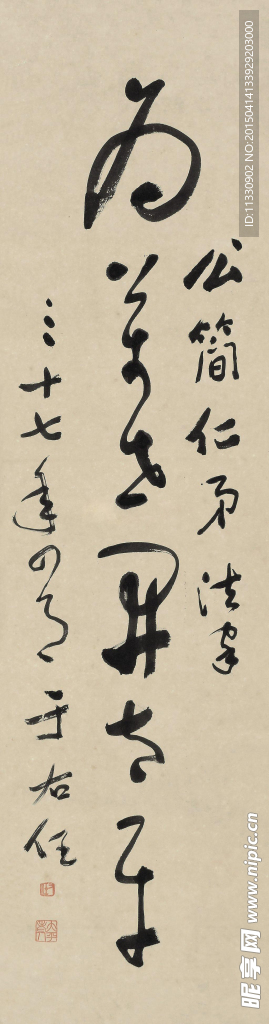 公簡仁弟法家
為萬世開太平
三十七年四月 于右任
ID:11330902 NO:20150414133929203000
昵享网 www.nipic.cn